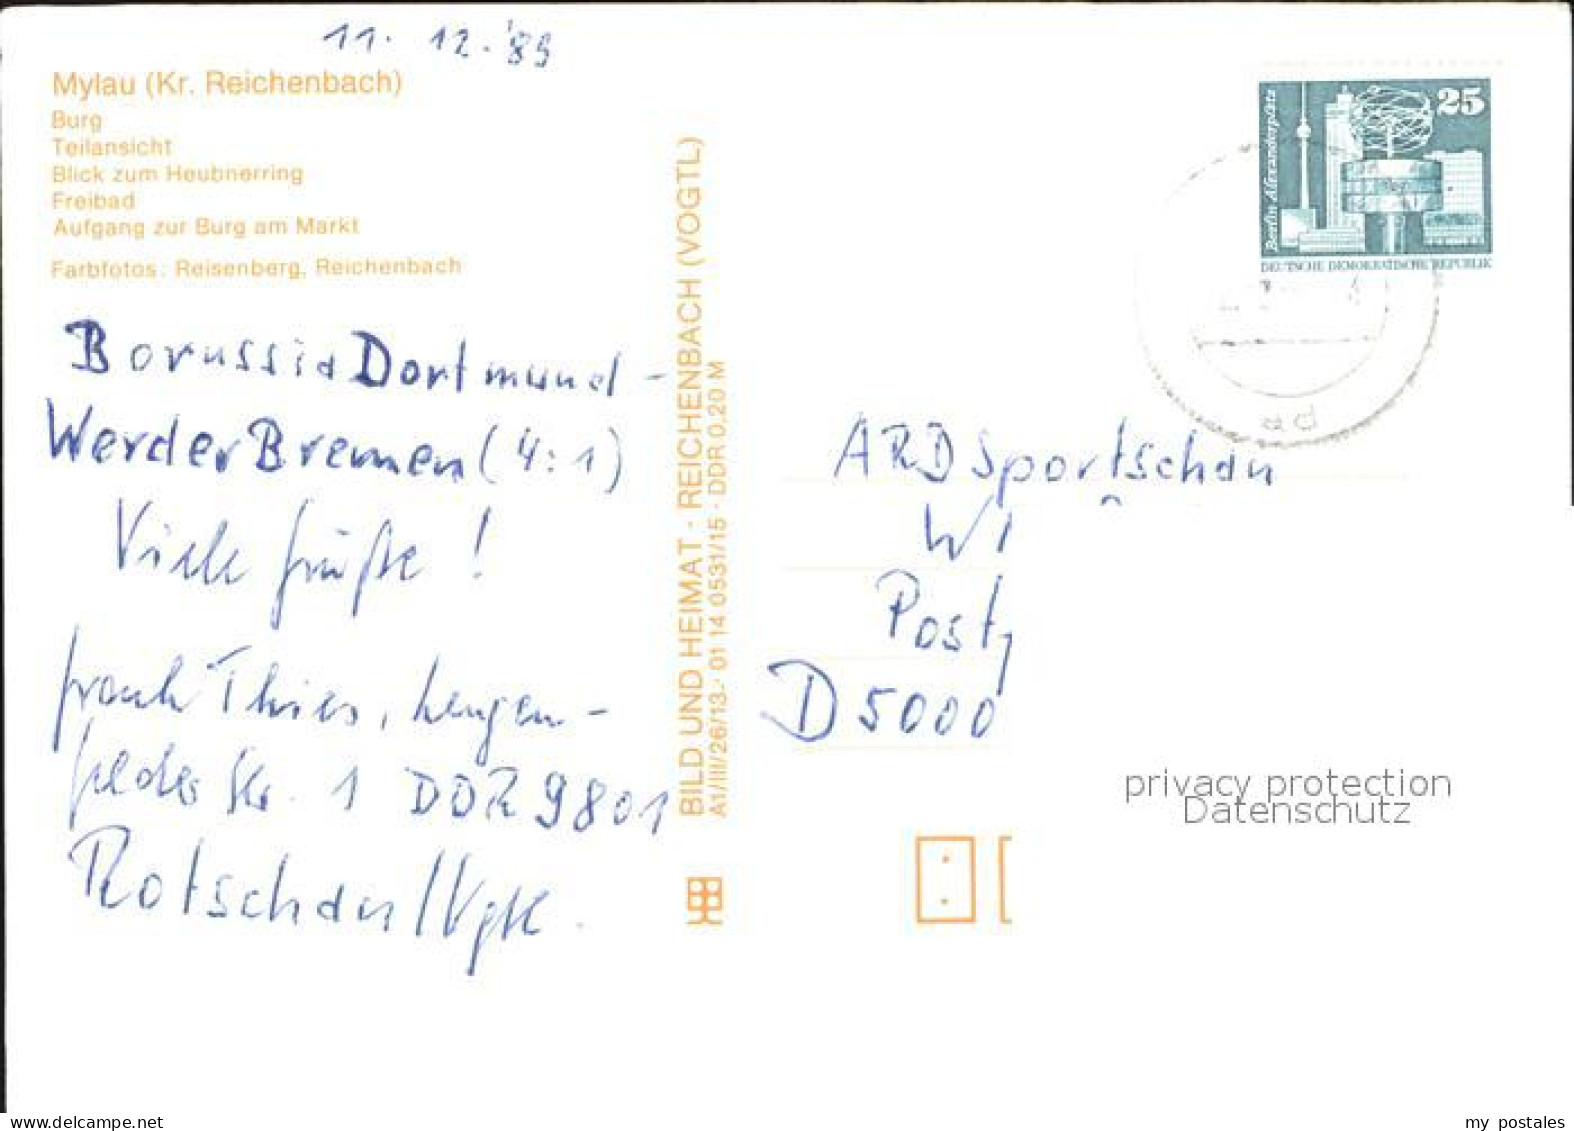 11. 12. '89
Mylau (Kr. Reichenbach)
Burg
Teilansicht
Blick zum Heubnerring
Freibad
Aufgang zur Burg am Markt
Farbfotos: Reisenberg, Reichenbach
Borussia Dortmund -
Werder Bremen (4:1)
Viele Grüße!
Frank Thies, Lengen-
felder Str. 1 DDR 9801
Rotschau/Vgtl.
BILD UND HEIMAT · REICHENBACH (VOGTL)
A1/III/26/13 · 01 14 0531/15 · DDR 0,20 M
25
Berlin Alexanderplatz
DEUTSCHE DEMOKRATISCHE REPUBLIK
ARD Sportschau
W
Post
D 5000
privacy protection
Datenschutz
my postales